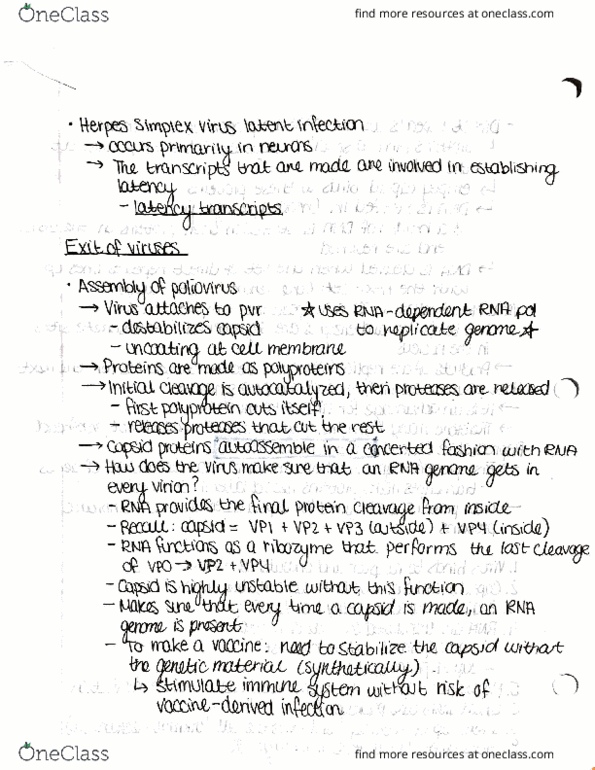 OneClass
find more resources at oneclass.com
• Herpes Simplex virus latent infection
→ occurs primarily in neurons
→ The transcripts that are made are involved in establishing
latency
- latency transcripts
Exit of viruses
• Assembly of poliovirus
→ Virus attaches to pvr ☆ uses RNA-dependent RNA pol
- destabilizes capsid to replicate genome ☆
- uncoating at cell membrane
→ Proteins are made as polyproteins
→ Initial cleavage is autocatalyzed, then proteases are released
- first polyprotein cuts itself,
- releases proteases that cut the rest
→ Capsid proteins autoassemble in a concerted fashion with RNA
→ How does the virus make sure that an RNA genome gets in
every virion?
- RNA provides the final protein cleavage from inside
- Recall: capsid = VP1 + VP2 + VP3 (outside) + VP4 (inside)
- RNA functions as a ribozyme that performs the last cleavage
of VP0 → VP2 + VP4
- Capsid is highly unstable without this function
- Makes sure that every time a capsid is made, an RNA
genome is present
- To make a vaccine: need to stabilize the capsid without
the genetic material (synthetically)
↳ stimulate immune system without risk of
vaccine-derived infection
OneClass
find more resources at oneclass.com